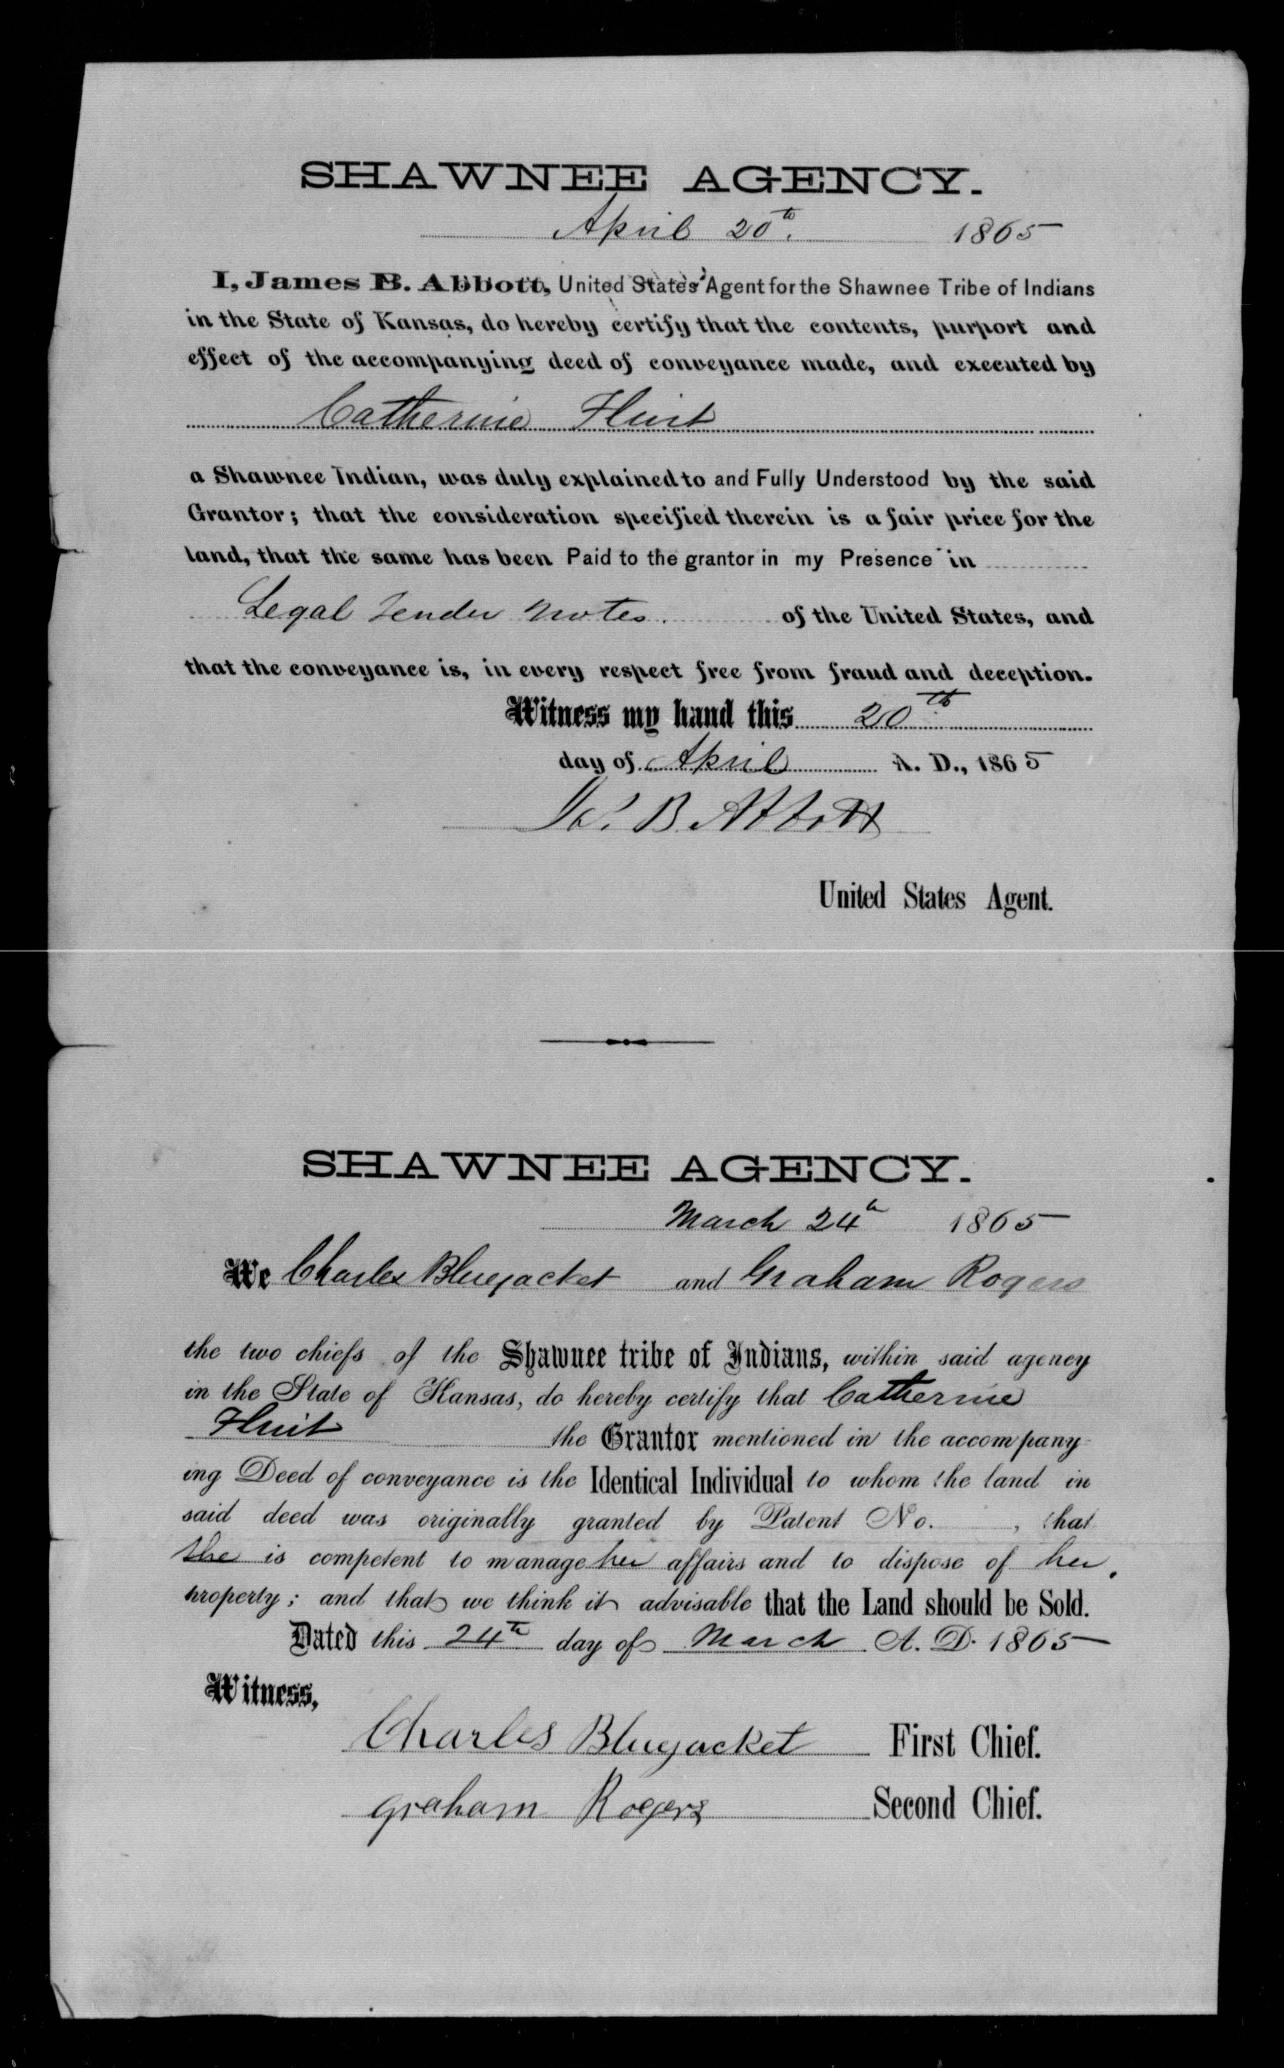 SHAWNEE AGENCY.
April 20th. 1865
I, James B. Abbott, United States' Agent for the Shawnee Tribe of Indians
in the State of Kansas, do hereby certify that the contents, purport and
effect of the accompanying deed of conveyance made, and executed by
Catherine Flint
a Shawnee Indian, was duly explained to and Fully Understood by the said
Grantor; that the consideration specified therein is a fair price for the
land, that the same has been Paid to the grantor in my Presence in
Legal Tender Notes. of the United States, and
that the conveyance is, in every respect free from fraud and deception.
Witness my hand this 20th
day of April A. D., 1865
Jas. B. Abbott
United States Agent.
SHAWNEE AGENCY.
March 24th 1865
We Charles Bluejacket and Graham Rogers
the two chiefs of the Shawnee tribe of Indians, within said agency
in the State of Kansas, do hereby certify that Catherine
Flint the Grantor mentioned in the accompany-
ing Deed of conveyance is the Identical Individual to whom the land in
said deed was originally granted by Patent No. , that
She is competent to manage her affairs and to dispose of her
property; and that we think it advisable that the Land should be Sold.
Dated this 24th day of March A. D. 1865
Witness,
Charles Bluejacket First Chief.
Graham Rogers Second Chief.